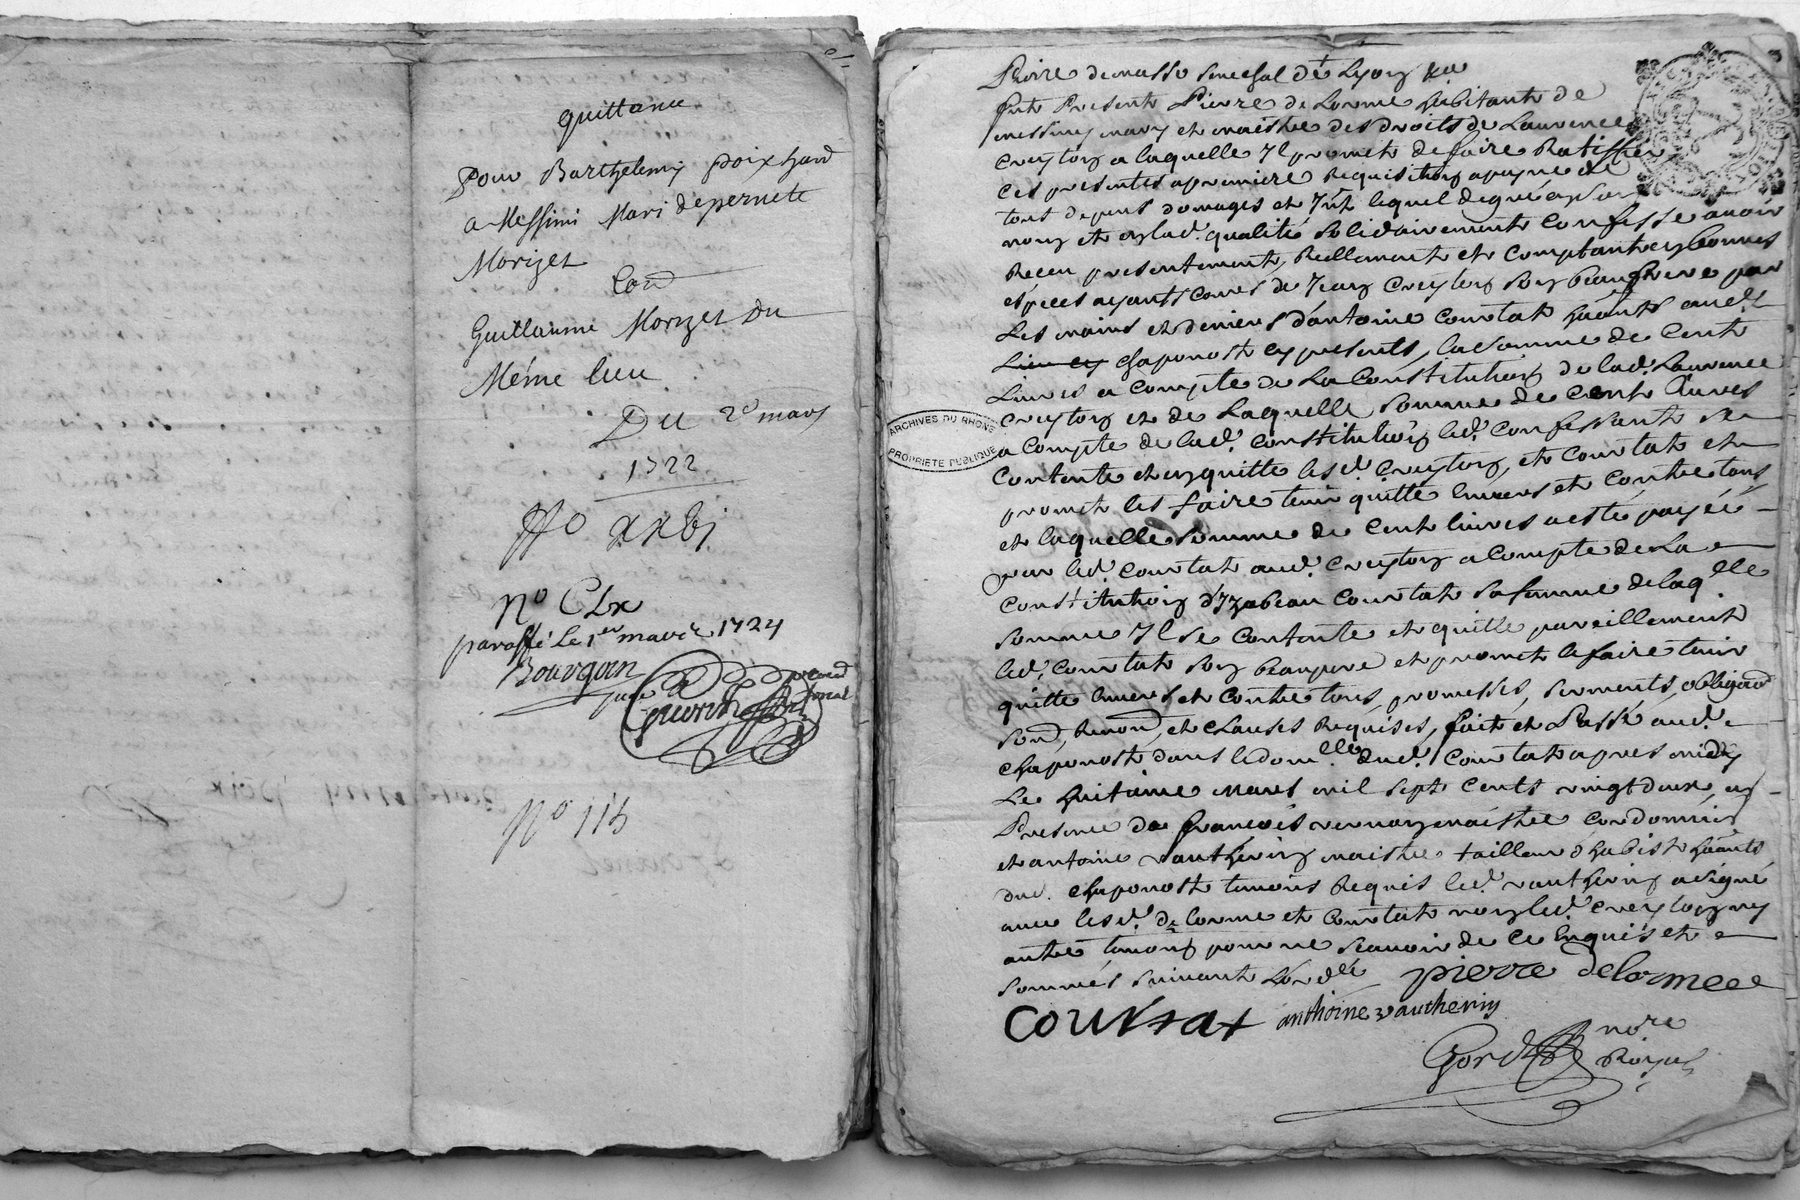 quittance
pour Barthelemy poixhard
a Messimi Mari de pernete
Morizet
Con
Guillaume Morizet Du
Méme lieu
Du 2e mars
1722
ffo xxbj
No CLx
paraffé le 1er mavre 1724
Bourgoin
No 115
ARCHIVES DU RHONE
PROPRIETE PUBLIQUE
de masso senechal de Lyon
fut Present Pierre de Lorme habitant de
messimy mary et maistre des droits de Laurence
creyton a laquelle Jl promet de faire Ratiffier
ces presentes a premiere Requisition a payne de
tous depens domages et lequel de gré a son
nom et en lad. qualité solidairement confesse avoir
Receu presentement, Reellement et comptant en bonnes
espèces ayants cours de Jean creyton son beaufrere par
Les mains et deniers d'antoine courtat
chaponost cy presents, la somme de Cent
Livres a compte de La Constitution de lad. Laurence
creyton et de Laquelle somme de cent Livres
a Compte de lad. constitution led. confessant se
contente et en quitte lesd. creyton, et courtat et
promet les faire tenir quitte envers et contre tous
et laquelle somme de cent livres a esté payéé
par led. courtat aud. creyton a Compte de La
constitution d'Yzabeau courtat sa femme de laqelle
somme Jl se contente et quitte pareillement
led. courtat son beaupere et promet le faire tenir
quitte envers et contre tous, promesses, serments, obligaon
soud, Renond, et clauses Requises, fait et Passé aud.
chaponost dans le domlle dud. Courtat apres midy
Le huitaine mars mil sept cents vingt deux, en
Presence de françois vernay maistre cordonnier
et antoine vautherin maistre tailleur d'habist
dud. chaponost temoins Requis led. vautherin a signé
avec lesd. de lorme et courtat non led. creyton ny
autre temoin pour ne scavoir de ce Enquis et
sommés suivant L'ordce pierre delormee
courtat anthoine vautherin
nore
Royal